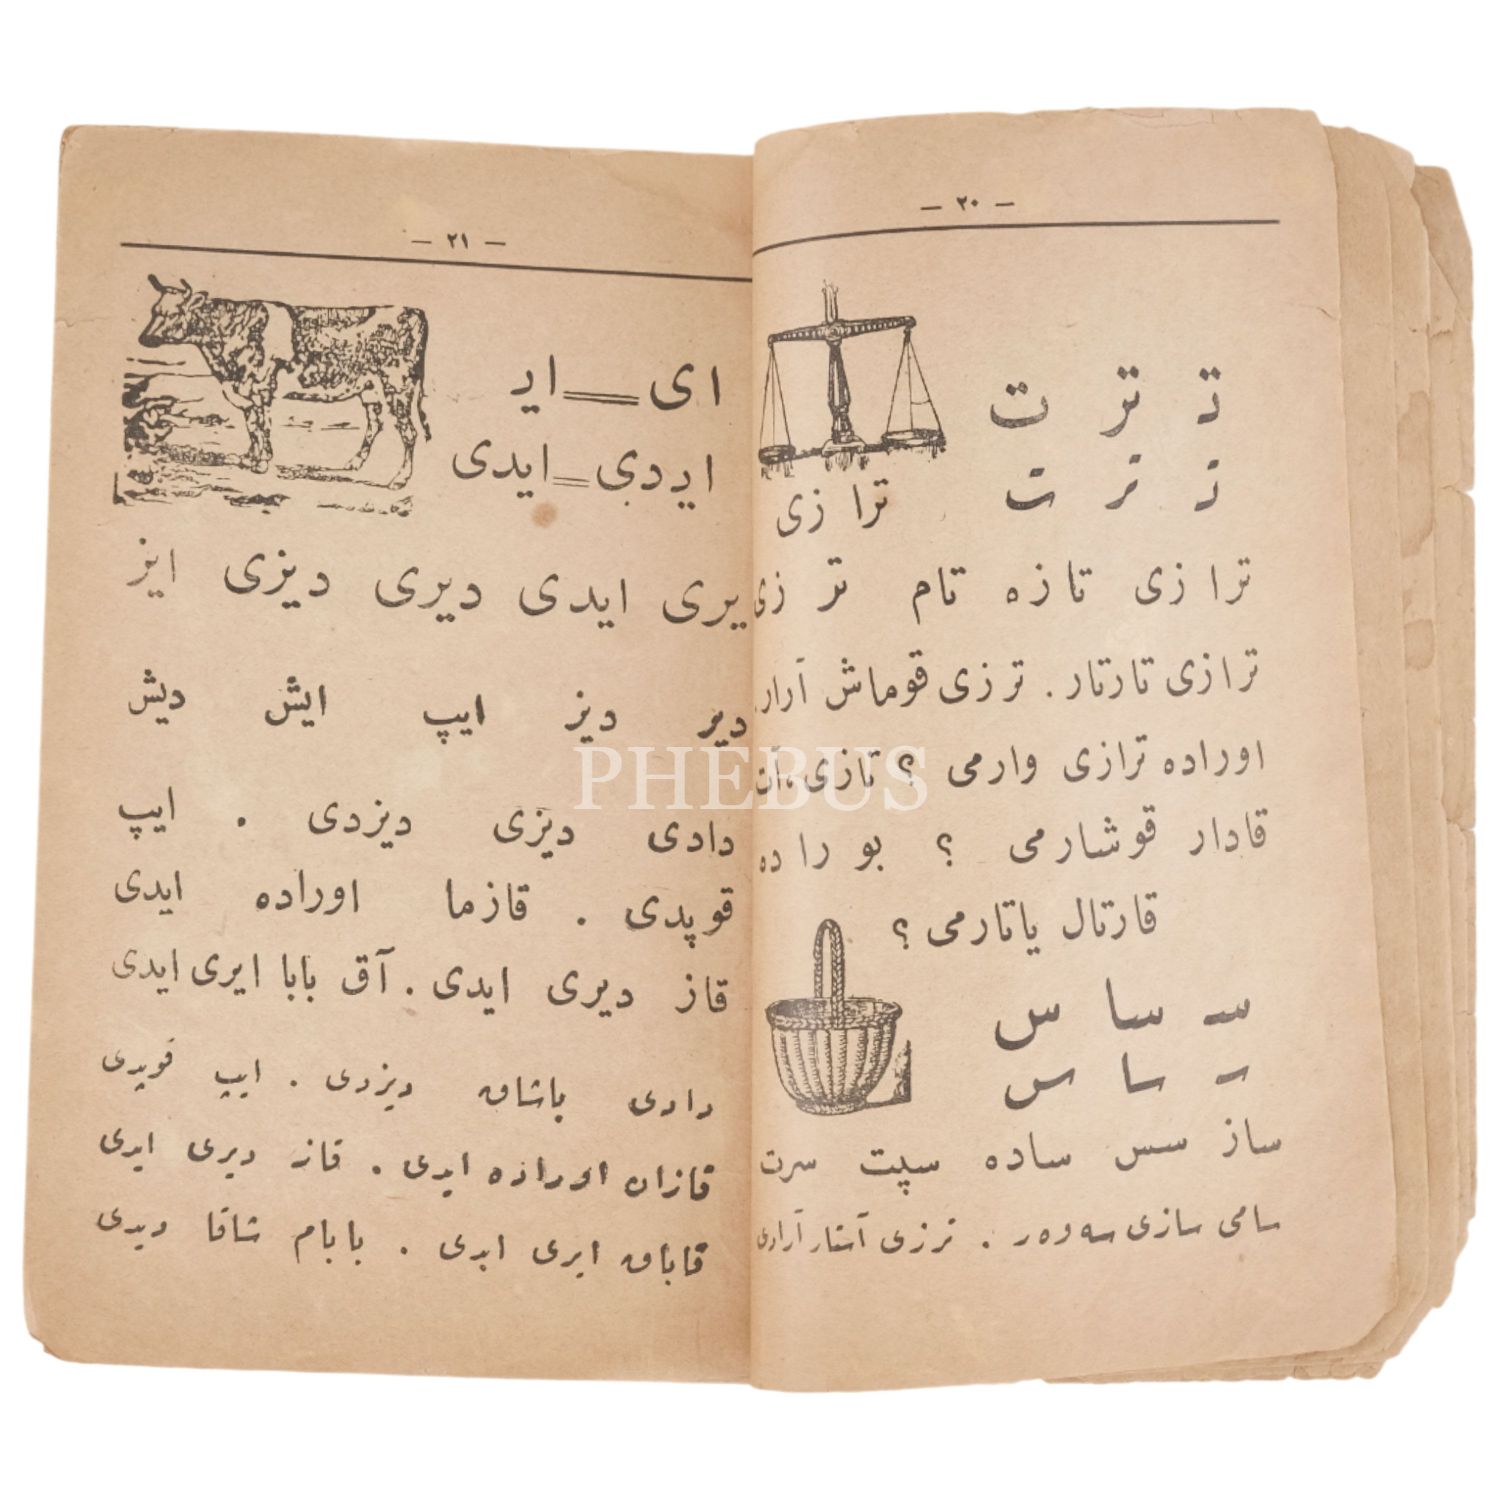 — ٢٠ —
تـ ـتر ت
تـ ـتر ت
ترازی
ترازی تازه تام ترزی
ترازی تارتار. ترزی قوماش آرار.
اوراده ترازی وارمی ؟ تازی، آت
قادار قوشارمی ؟ بوراده
قارتال یاتارمی ؟
سـ سا س
سـ سا س
ساز سس ساده سپت سرت
سامی سازی سه‌وه‌ر . ترزی آستار آرادی
— ٢١ —
ای = ایـ
ایـدی = ایدی
یری ایدی دیری دیزی ایز
دیر دیز ایپ ایش دیش
دادی دیزی دیزدی . ایپ
قوپدی . قازما اوراده ایدی
قاز دیری ایدی . آق بابا ایری ایدی
دادی باشاق دیزدی . ایپ قوپدی
قازان اوراده ایدی . قاز دیری ایدی
قاباق ایری ایدی . بابام شاقا دیدی
PHEBUS